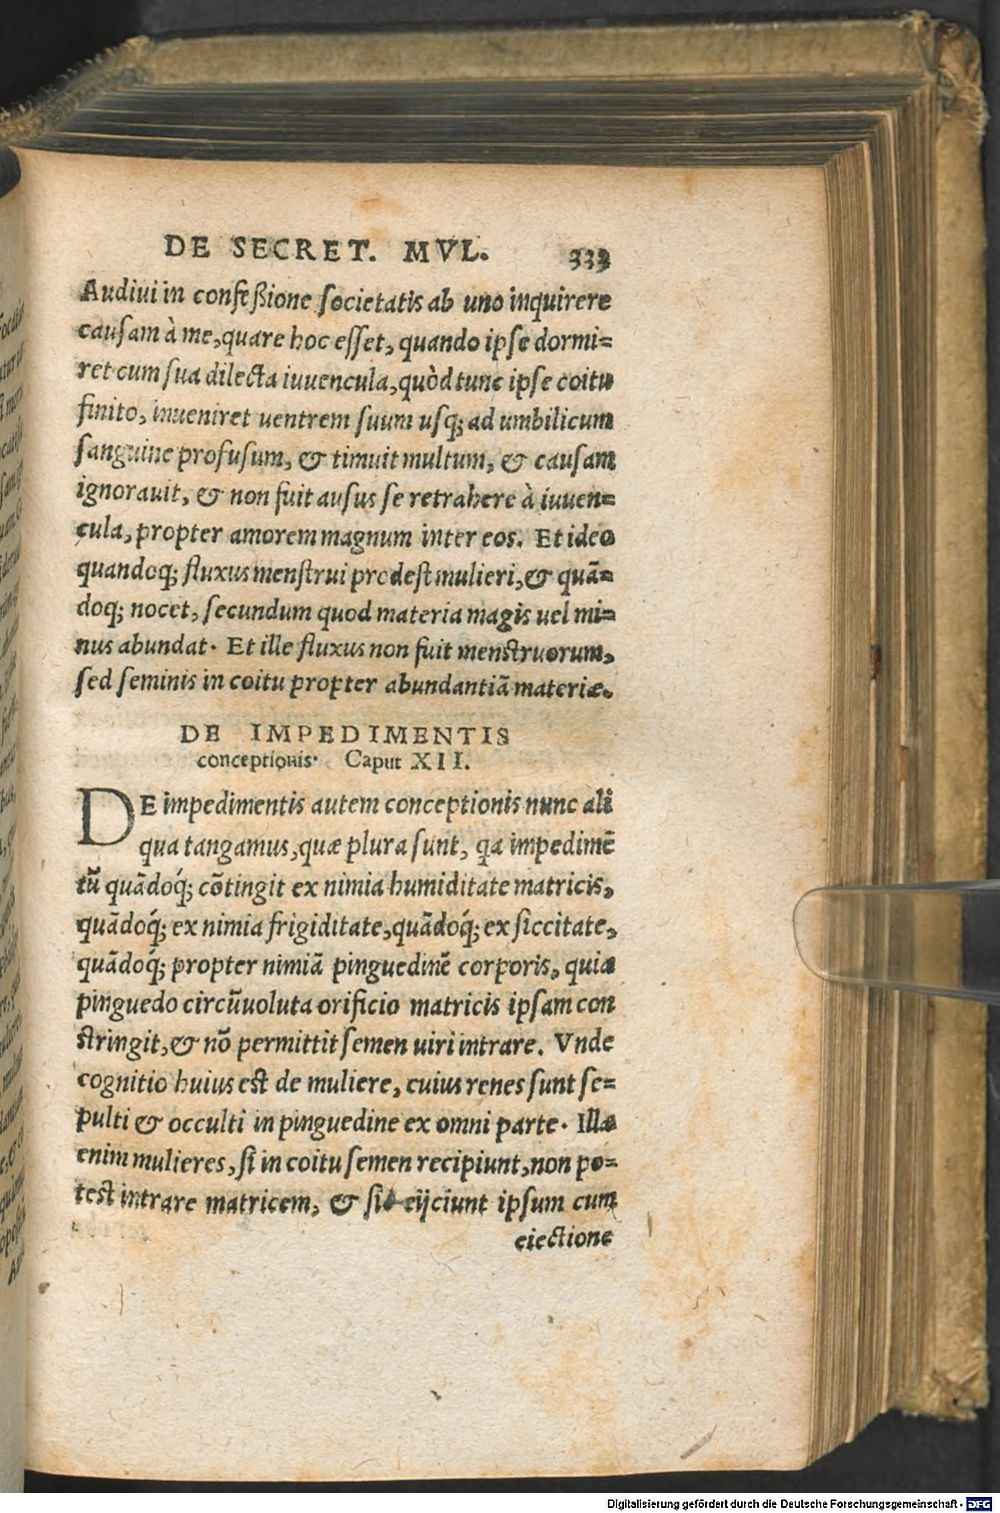 DE SECRET. MVL. 333
Audiui in confeßione societatis ab uno inquirere
causam à me, quare hoc esset, quando ipse dormi=
ret cum sua dilecta iuuencula, quòd tunc ipse coitu
finito, inueniret uentrem suum usq; ad umbilicum
sanguine profusum, & timuit multum, & causam
ignorauit, & non fuit ausus se retrahere à iuuen=
cula, propter amorem magnum inter eos. Et ideo
quandoq; fluxus menstrui prodest mulieri, & quā=
doq; nocet, secundum quod materia magis uel mi=
nus abundat. Et ille fluxus non fuit menstruorum,
sed seminis in coitu propter abundantiā materiæ.
DE IMPEDIMENTIS
conceptionis. Caput XII.
DE impedimentis autem conceptionis nunc ali
qua tangamus, quæ plura sunt, qa impedimē
tū quādoq́; cōtingit ex nimia humiditate matricis,
quādoq́; ex nimia frigiditate, quādoq́; ex siccitate,
quādoq́; propter nimiā pinguedinē corporis, quia
pinguedo circūuoluta orificio matricis ipsam con
stringit, & nō permittit semen uiri intrare. Vnde
cognitio huius est de muliere, cuius renes sunt se=
pulti & occulti in pinguedine ex omni parte. Illæ
enim mulieres, si in coitu semen recipiunt, non po=
test intrare matricem, & sic eijciunt ipsum cum
eiectione
Digitalisierung gefördert durch die Deutsche Forschungsgemeinschaft - DFG